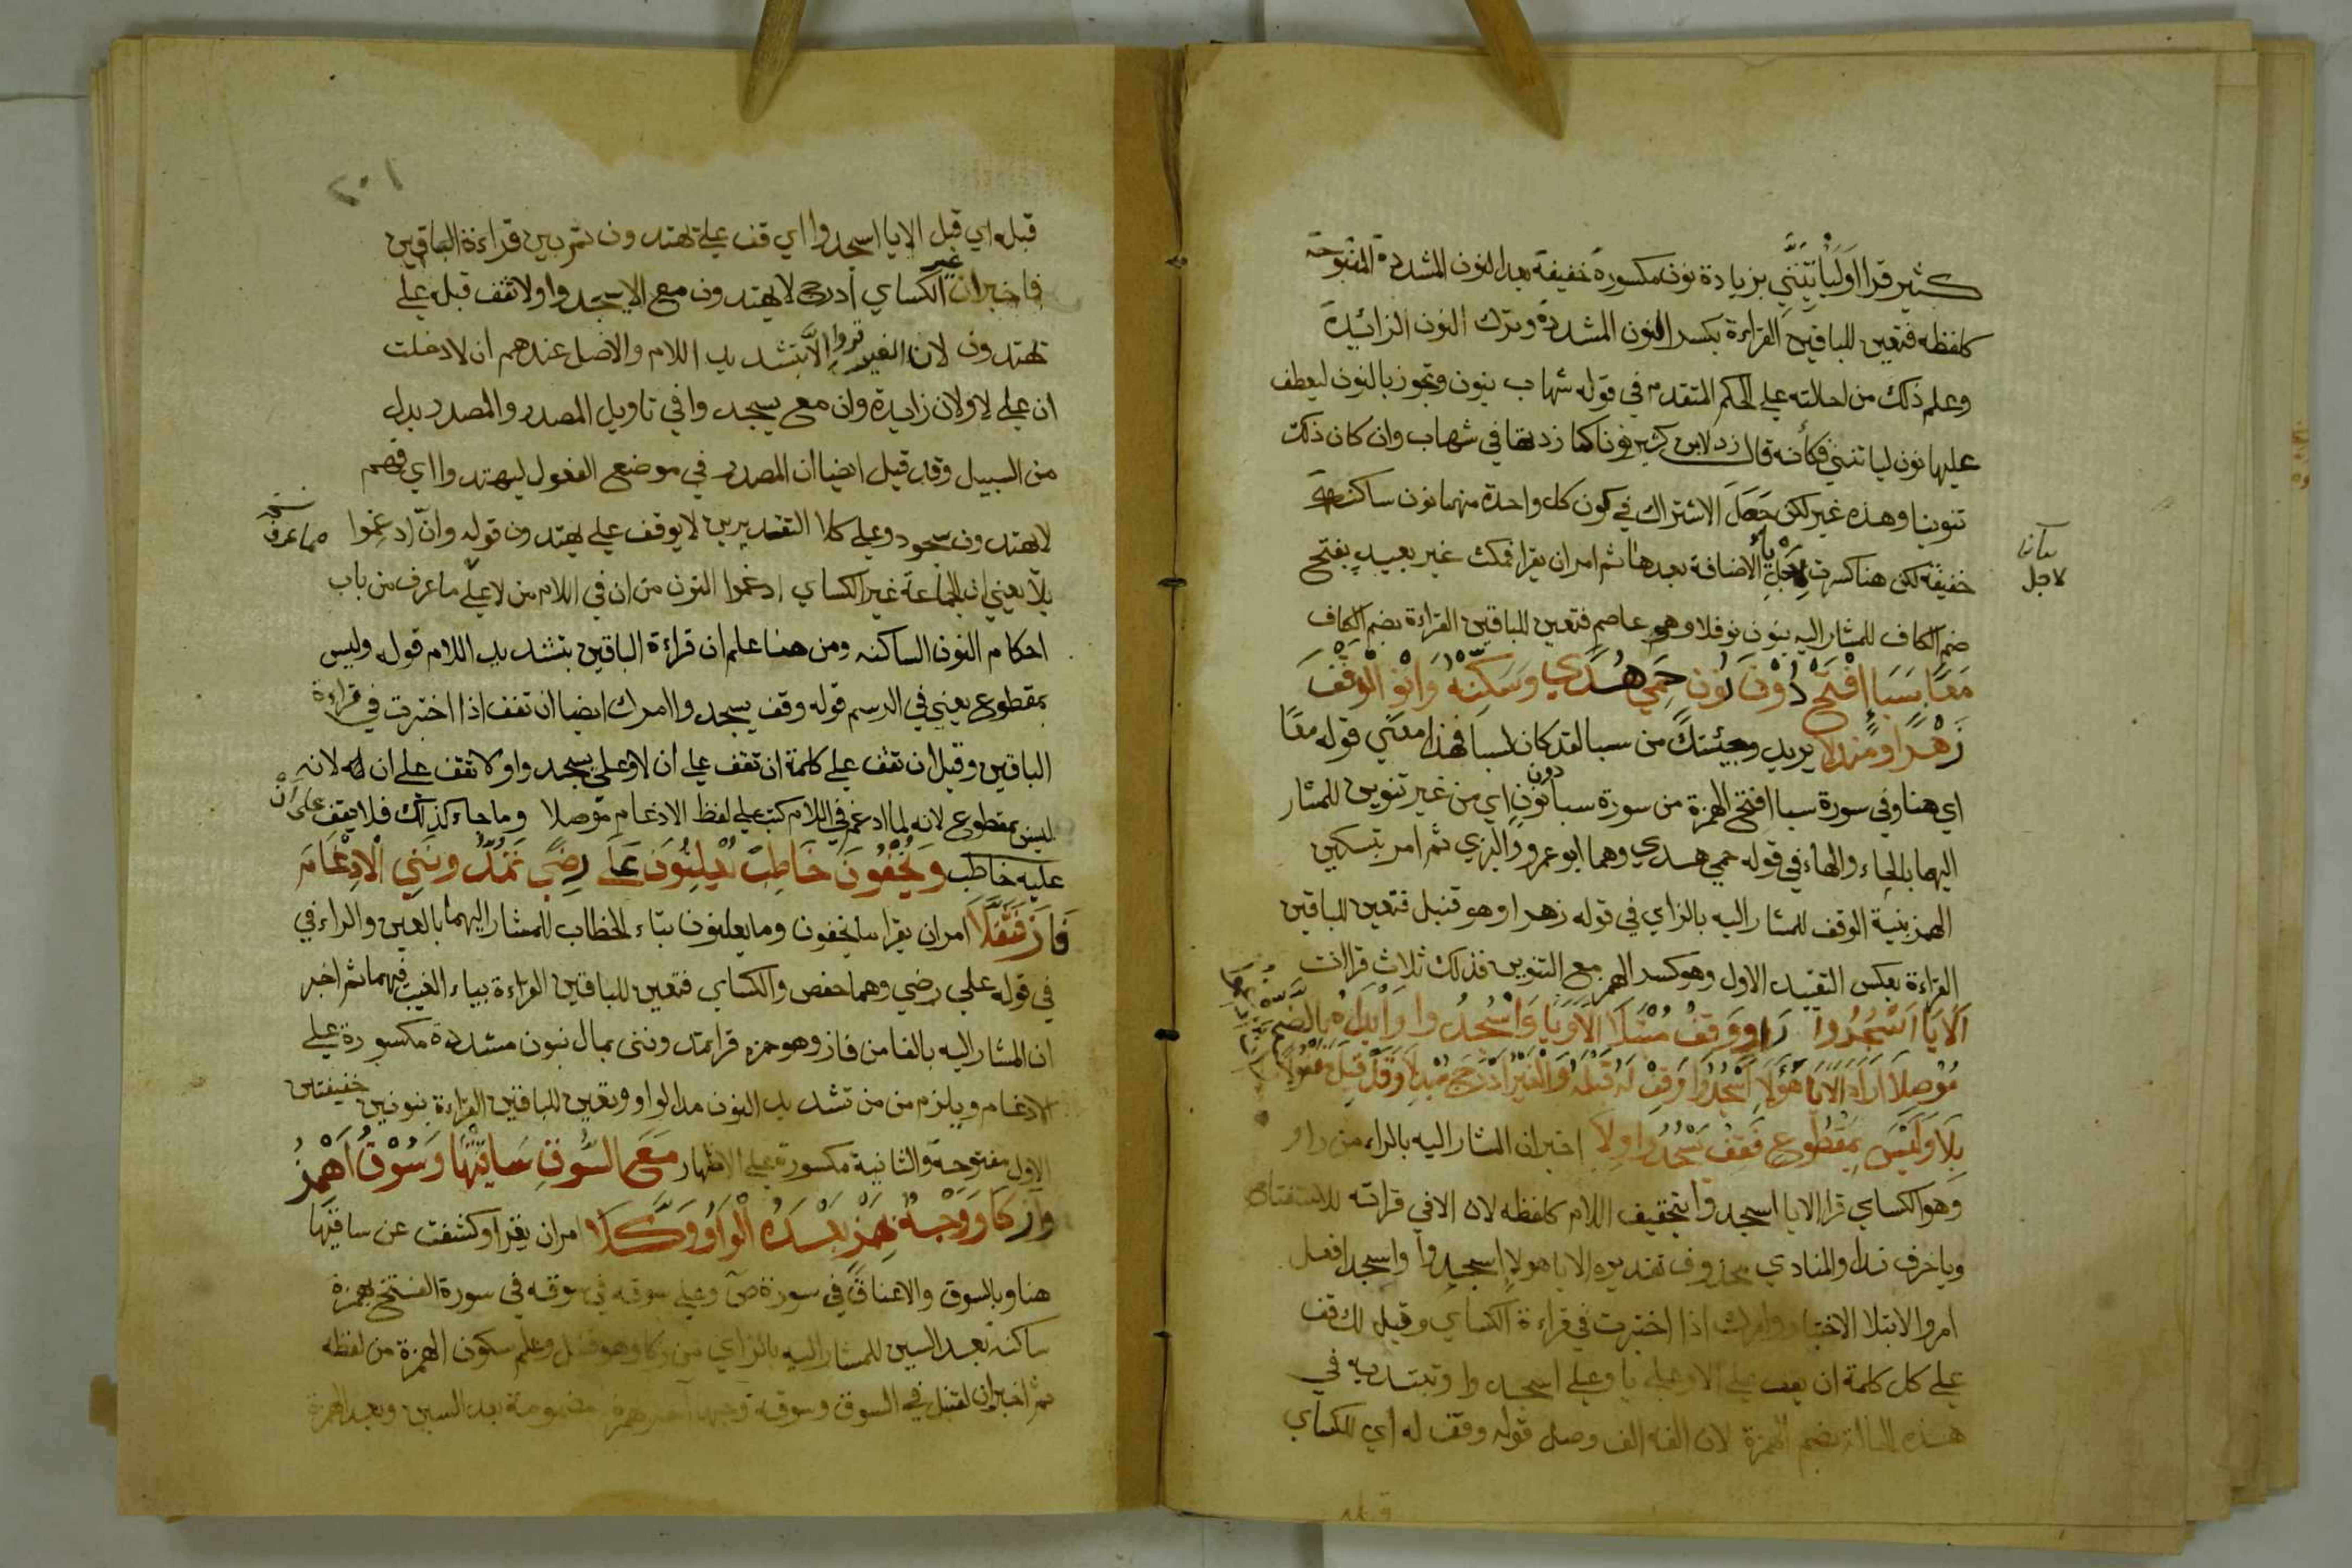 كثير قرا اوليأتينني بزيادة نون مكسورة خفيفة بعد النون المشددة المفتوحة
كلفظه فتعين للباقين القراءة بكسر النون المشددة وترك النون الزائدة
وعلم ذلك من احالته علي الحكم المتقدم في قوله شهاب بنون وتجوز بالنون ليعطف
عليها نون لياتنني فكأنه قال زد لابن كثير نونا كما زدتها في شهاب وان كان ذلك
تنوينا وهذه غير لكن حصل الاشتراك في كون كل واحدة منهما نون ساكنة
خفيفة لكن هنا كسرت لاجل يا الاضافة بعدها ثم امر ان يقرا فمكث غير بعيد بفتح
لاجل
ضم الكاف للمشار اليه بنون نوفلا وهو عاصم فتعين للباقين القراءة بضم الكاف
مَعًا سَبَأ افْتَحْ دُوْنَ نُونٍ حِمَي هُدَي وَسَكِّنْهُ وَانْوِ الْوَقْفَ
زَهْرًا ومَنْدَلا يريد وجئتك من سبا لقد كان لسبا فهذا معني قوله معا
اي هنا وفي سورة سبا افتح الهمزة من سورة سبا دون نون اي من غير تنوين للمشار
اليهما بالحاء والهاء في قوله حمي هدي وهما ابو عمرو والبزي ثم امر بتسكين
الهمز بنية الوقف للمشار اليه بالزاي في قوله زهرا وهو قنبل فتعين للباقين
القراءة بعكس التقييد الاول وهو كسر الهمز مع التنوين فذلك ثلاث قراات
اَلَا يَا اسْجُدُوا رَاوٍ وَقِفْ مُبْتَلًا اَلَا وَيَا وَاسْجُدُوا وَابْدَاهُ بِالضَّمِّ
مُوْصِلاَ اَرَادَ اَلَا يَا هَؤُلَاءِ اسْجُدُوا وَقِفْ لَهُ قَبْلَهُ وَالْغَيْرُ اَدْرَجَ مُبْدِلاَ وَقَدْ قِيلَ مَفْعُولاً
بِلَا وَلَيْسَ بِمَقْطُوعٍ فَقِفْ يَسْجُدُوا وِلاَ اخبر ان المشار اليه بالراء من راو
وهو الكساي قرا الا يا اسجدوا بتخفيف اللام كلفظه لان الا في قراته للاستفتاح
ويا حرف ندا والمنادي محذوف تقديره الا يا هولا اسجدوا واسجدوا فعل
امر والابتلا الاختبار وامرك اذا اختبرت في قراءة الكساي وقيل لك قف
علي كل كلمة ان تقف علي الا وعلي يا وعلي اسجدوا وتبتديه في
هذه الحالة بضم الهمزة لان الفه الف وصل قوله وقف له اي للكساي
٢٠١
قبله اي قبل الا يا اسجدوا اي قف علي يهتدون ثم بين قراءة الباقين
فاخبر ان غير الكساي ادرج لا يهتدون مع الا يسجدوا ولا تقف قبله علي
يهتدون لان الغير قروا الا بتشديد اللام والاصل عندهم ان لا دخلت
ان علي لا ولان زايدة وان مع يسجدوا في تاويل المصدر والمصدر بدل
من السبيل وقد قيل ايضا ان المصدر في موضع المفعول ليهتدوا اي فهم
لا يهتدون سجود وعلي كلا التقديرين لا يوقف علي يهتدون قوله وان ادغموا مما عرف
بلا يعني ان الجماعة غير الكساي ادغموا النون من ان في اللام من لا علي ما عرف من باب
احكام النون الساكنه ومن هنا علم ان قراءة الباقين بتشديد اللام قوله وليس
بمقطوع يعني في الرسم قوله وقف يسجدوا امرك ايضا ان تقف اذا اختبرت في قراءة
الباقين وقيل ان تقف علي كلمة ان تقف علي ان لا وعلي يسجدوا ولا تقف علي ان لانه
ليس بمقطوع لانه لما ادغم في اللام كتب علي لفظ الادغام موصلا وما جاء كذلك فلا يقف علي ان
عليه خاطب وَيُخْفُونَ خَاطِبْ يُعْلِنُونَ عَلَي رِضًي تُمِدُّونَنِي الْاِدْغَامُ
فَازَ فَثَقَّلَا امر ان يقرا ما يخفون وما يعلنون بتاء الخطاب للمشار اليهما بالعين والراء في
في قوله علي رضي وهما حفص والكساي فتعين للباقين القراءة بياء الغيب فيهما ثم اخبر
ان المشار اليه بالفا من فاز وهو حمزه قرا تمدونني بمال بنون مشددة مكسورة علي
الادغام ويلزم من تشديد النون مد الواو وتعين للباقين القراءة بنونين خفيفتين
الاول مفتوحة والثانية مكسورة علي الاظهار مَعَ السُّوقِ سَاقَيْهَا وَسُوْقِ اهْمِزُ
وا زَكَا وَوَجْهٌ بِهَمْزٍ بَعْدَهُ الْوَاوُ وُكِّلَا امر ان يقرا وكشفت عن ساقيها
هنا وبالسوق والاعناق في سورة ص وعلي سوقه في سوقه في سورة الفتح بهمزة
ساكنة بعد السين للمشار اليه بالزاي من زكا وهو قنبل وعلم سكون الهمزة من لفظه
ثم اخبر ان لقنبل في السوق وسوقه وجها اخر همزة مضمومة بعد السين وبعد الهمزة